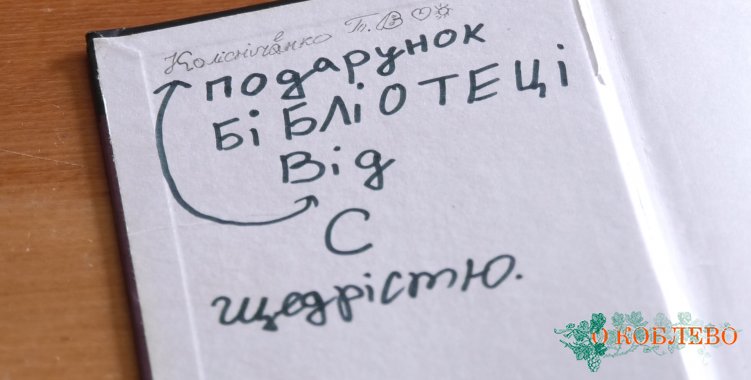 Колісніченко Т. В ♡☼
подарунок
бібліотеці
від
С
щедрістю.
О КОБЛЕВО